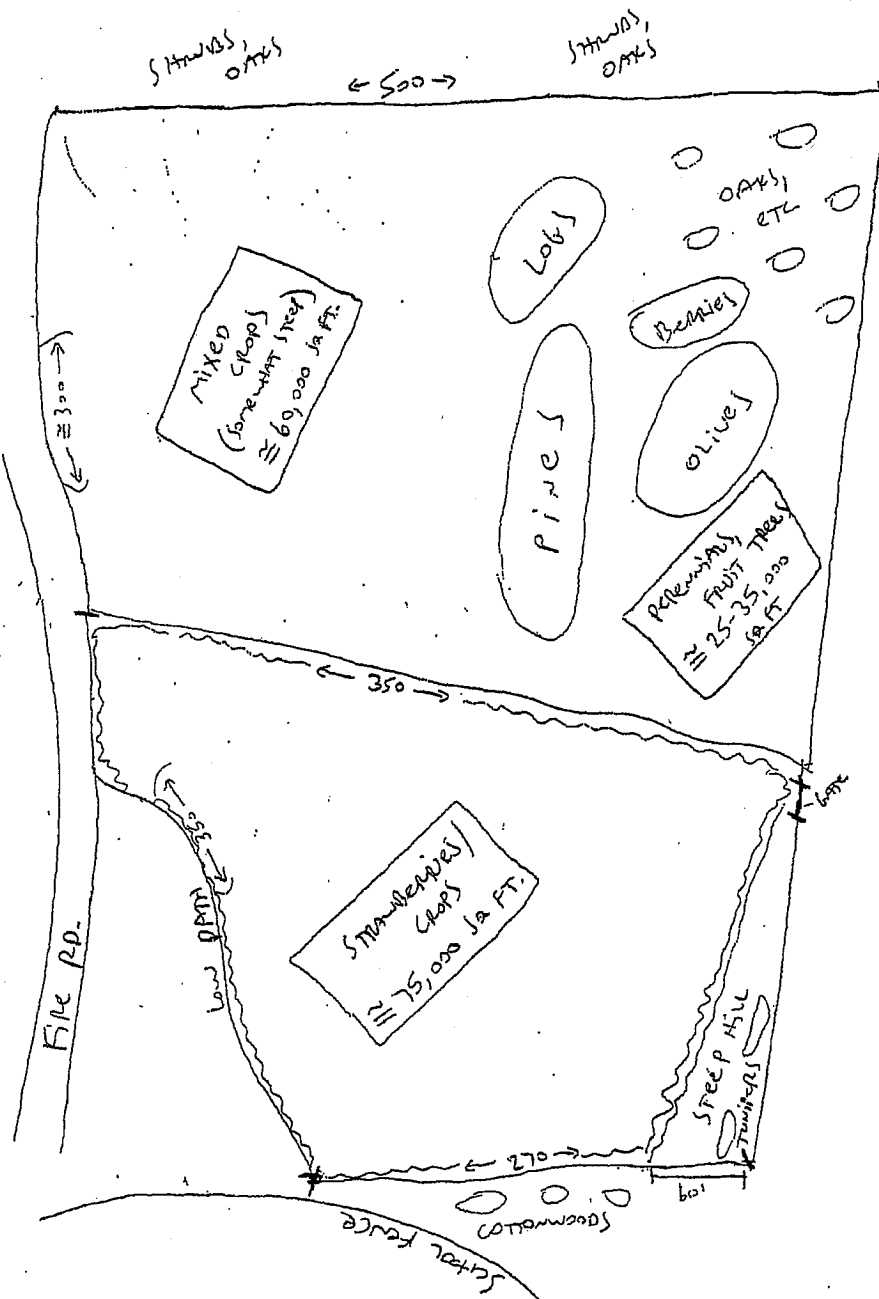 SHRUBS,
OAKS
SHRUBS,
OAKS
← 500 →
OAKS,
ETC
LOGS
BERRIES
MIXED
CROPS
(SOMEWHAT STEEP)
≅ 60,000 SQ FT.
≅300
OLIVES
PINES
PERENNIALS,
FRUIT TREES
≅ 25-35,000
SQ FT
← 350 →
GATE
STRAWBERRIES/
CROPS
≅ 75,000 SQ FT.
← 350 →
LOW PATH
FIRE RD.
STEEP HILL
JUNIPERS
← 270 →
COTTONWOODS
SCHOOL FENCE